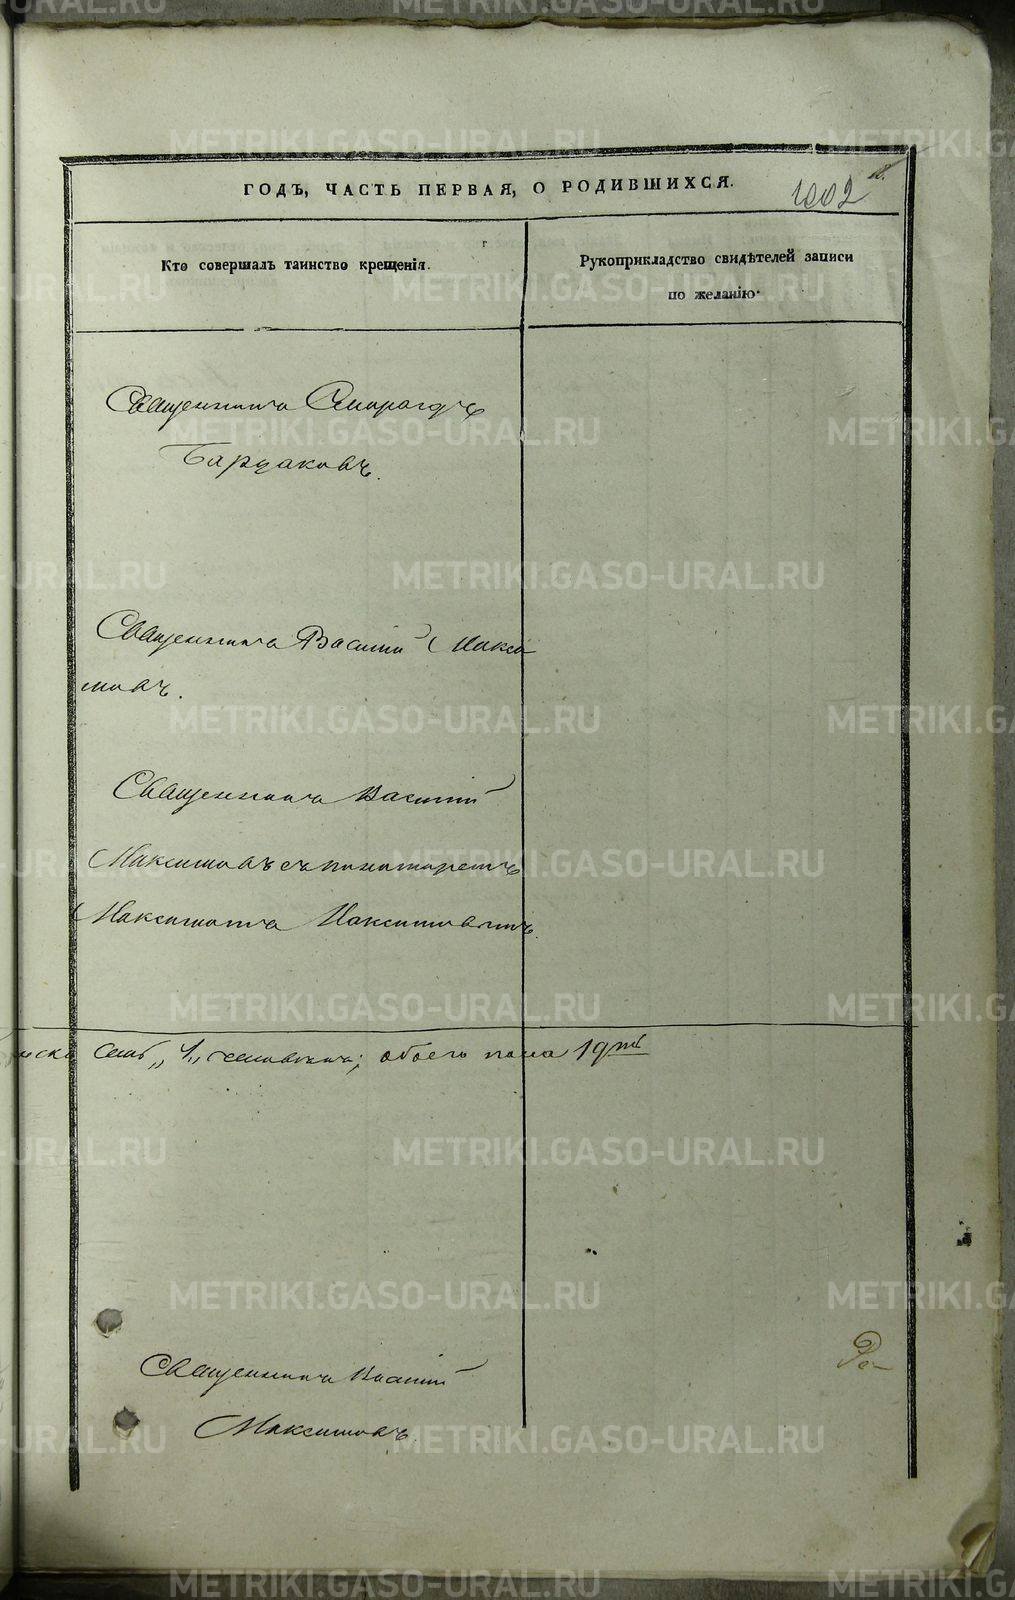 ГОДЪ, ЧАСТЬ ПЕРВАЯ, О РОДИВШИХСЯ.
1002
Кто совершалъ таинство крещенія.
Рукоприкладство свидѣтелей записи
по желанію.
Священникъ Смарагдъ
Священникъ Василій Макси
мовъ.
Священникъ Василій
Максимовъ съ пономаремъ
Максимовичемъ
7 человѣкъ; обоего пола 19ть
Священникъ Василій
Максимовъ.
METRIKI.GASO-URAL.RU